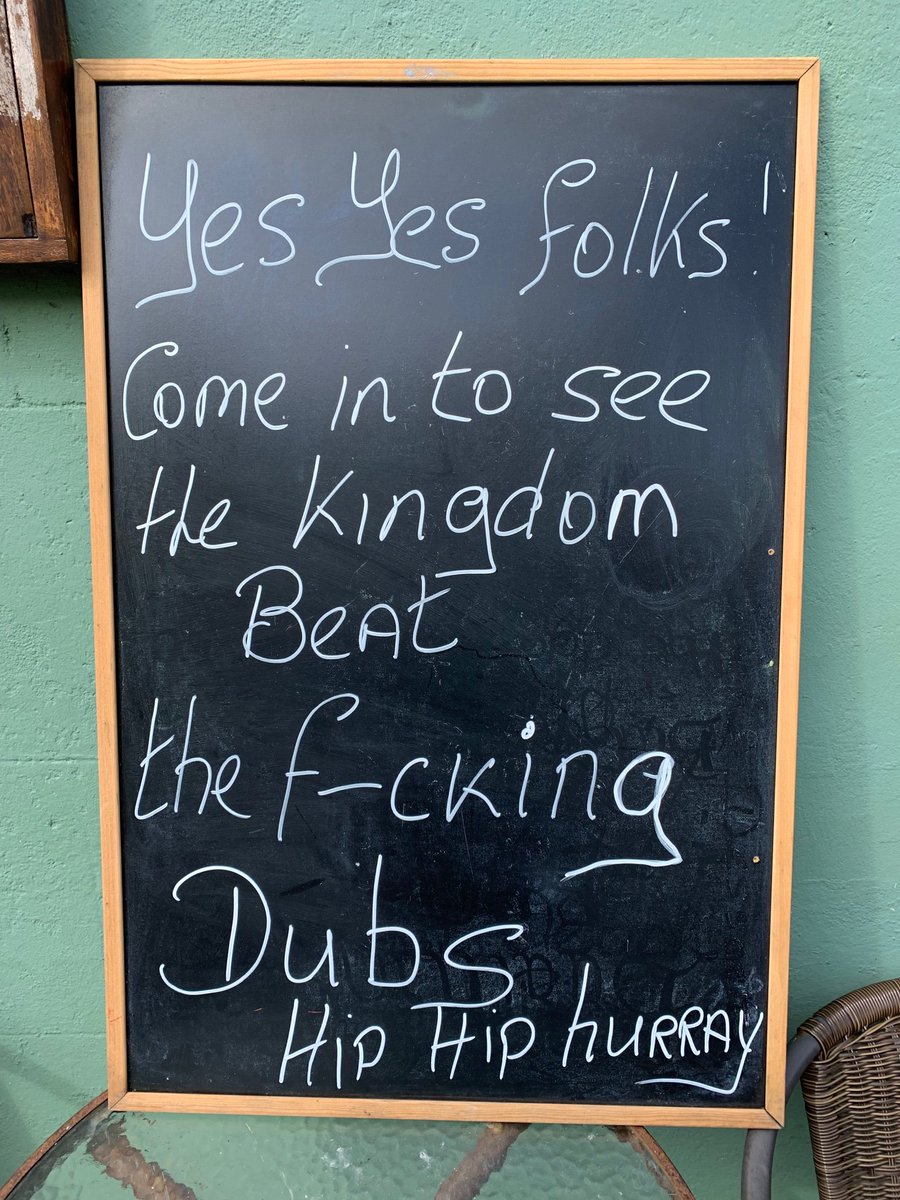 Yes Yes folks!
Come in to see
the Kingdom
Beat
the f-cking
Dubs
Hip Hip hurray